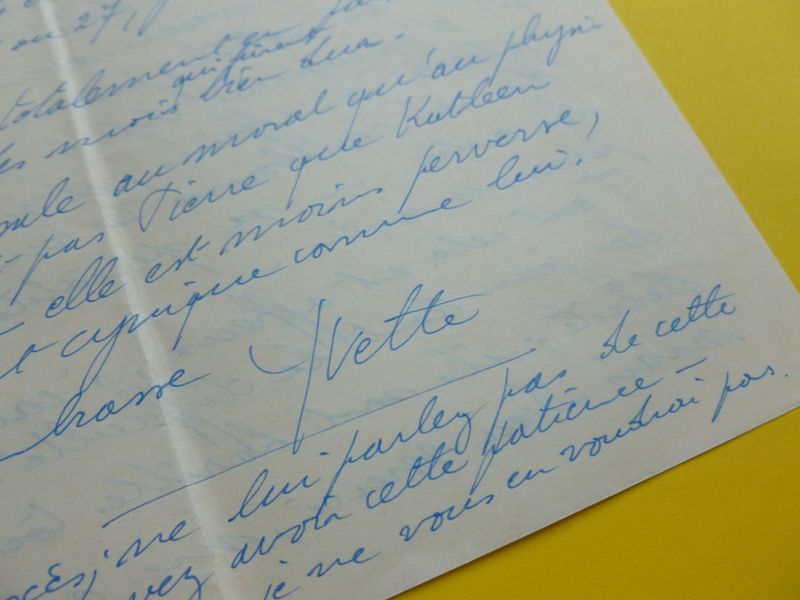 ou 27,
totalement en
qui furent
mois bien dur.
au moral qu'au physi
pas Pierre que Kathleen
elle est moins perverse,
cynique comme lui.
brasse Yvette
ne lui parlez pas de cette
vez avoir cette patience -
je ne vous en voudrai pas.